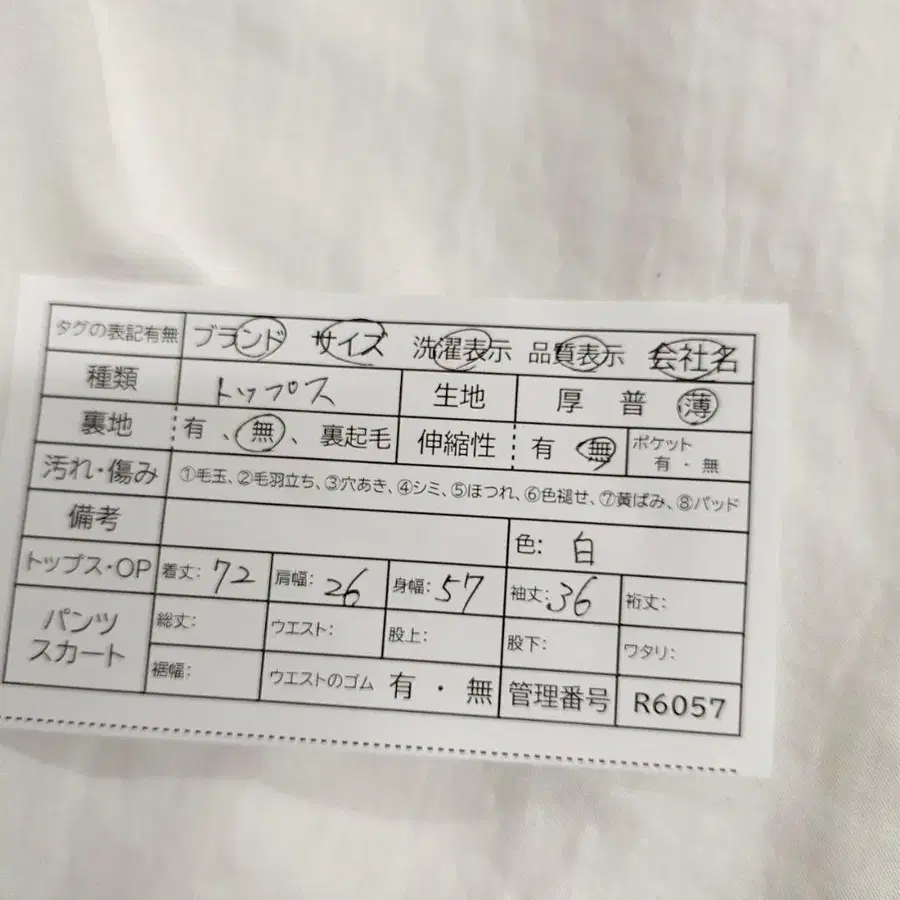 タグの表記有無 ブランド サイズ 洗濯表示 品質表示 会社名
種類 トップス 生地 厚 普 薄
裏地 有、無、裏起毛 伸縮性 有 無 ポケット 有・無
汚れ・傷み ①毛玉、②毛羽立ち、③穴あき、④シミ、⑤ほつれ、⑥色褪せ、⑦黄ばみ、⑧パッド
備考 色: 白
トップス・OP 着丈: 72 肩幅: 26 身幅: 57 袖丈: 36 裄丈:
パンツ スカート 総丈: ウエスト: 股上: 股下: ワタリ:
裾幅: ウエストのゴム 有・無 管理番号 R6057